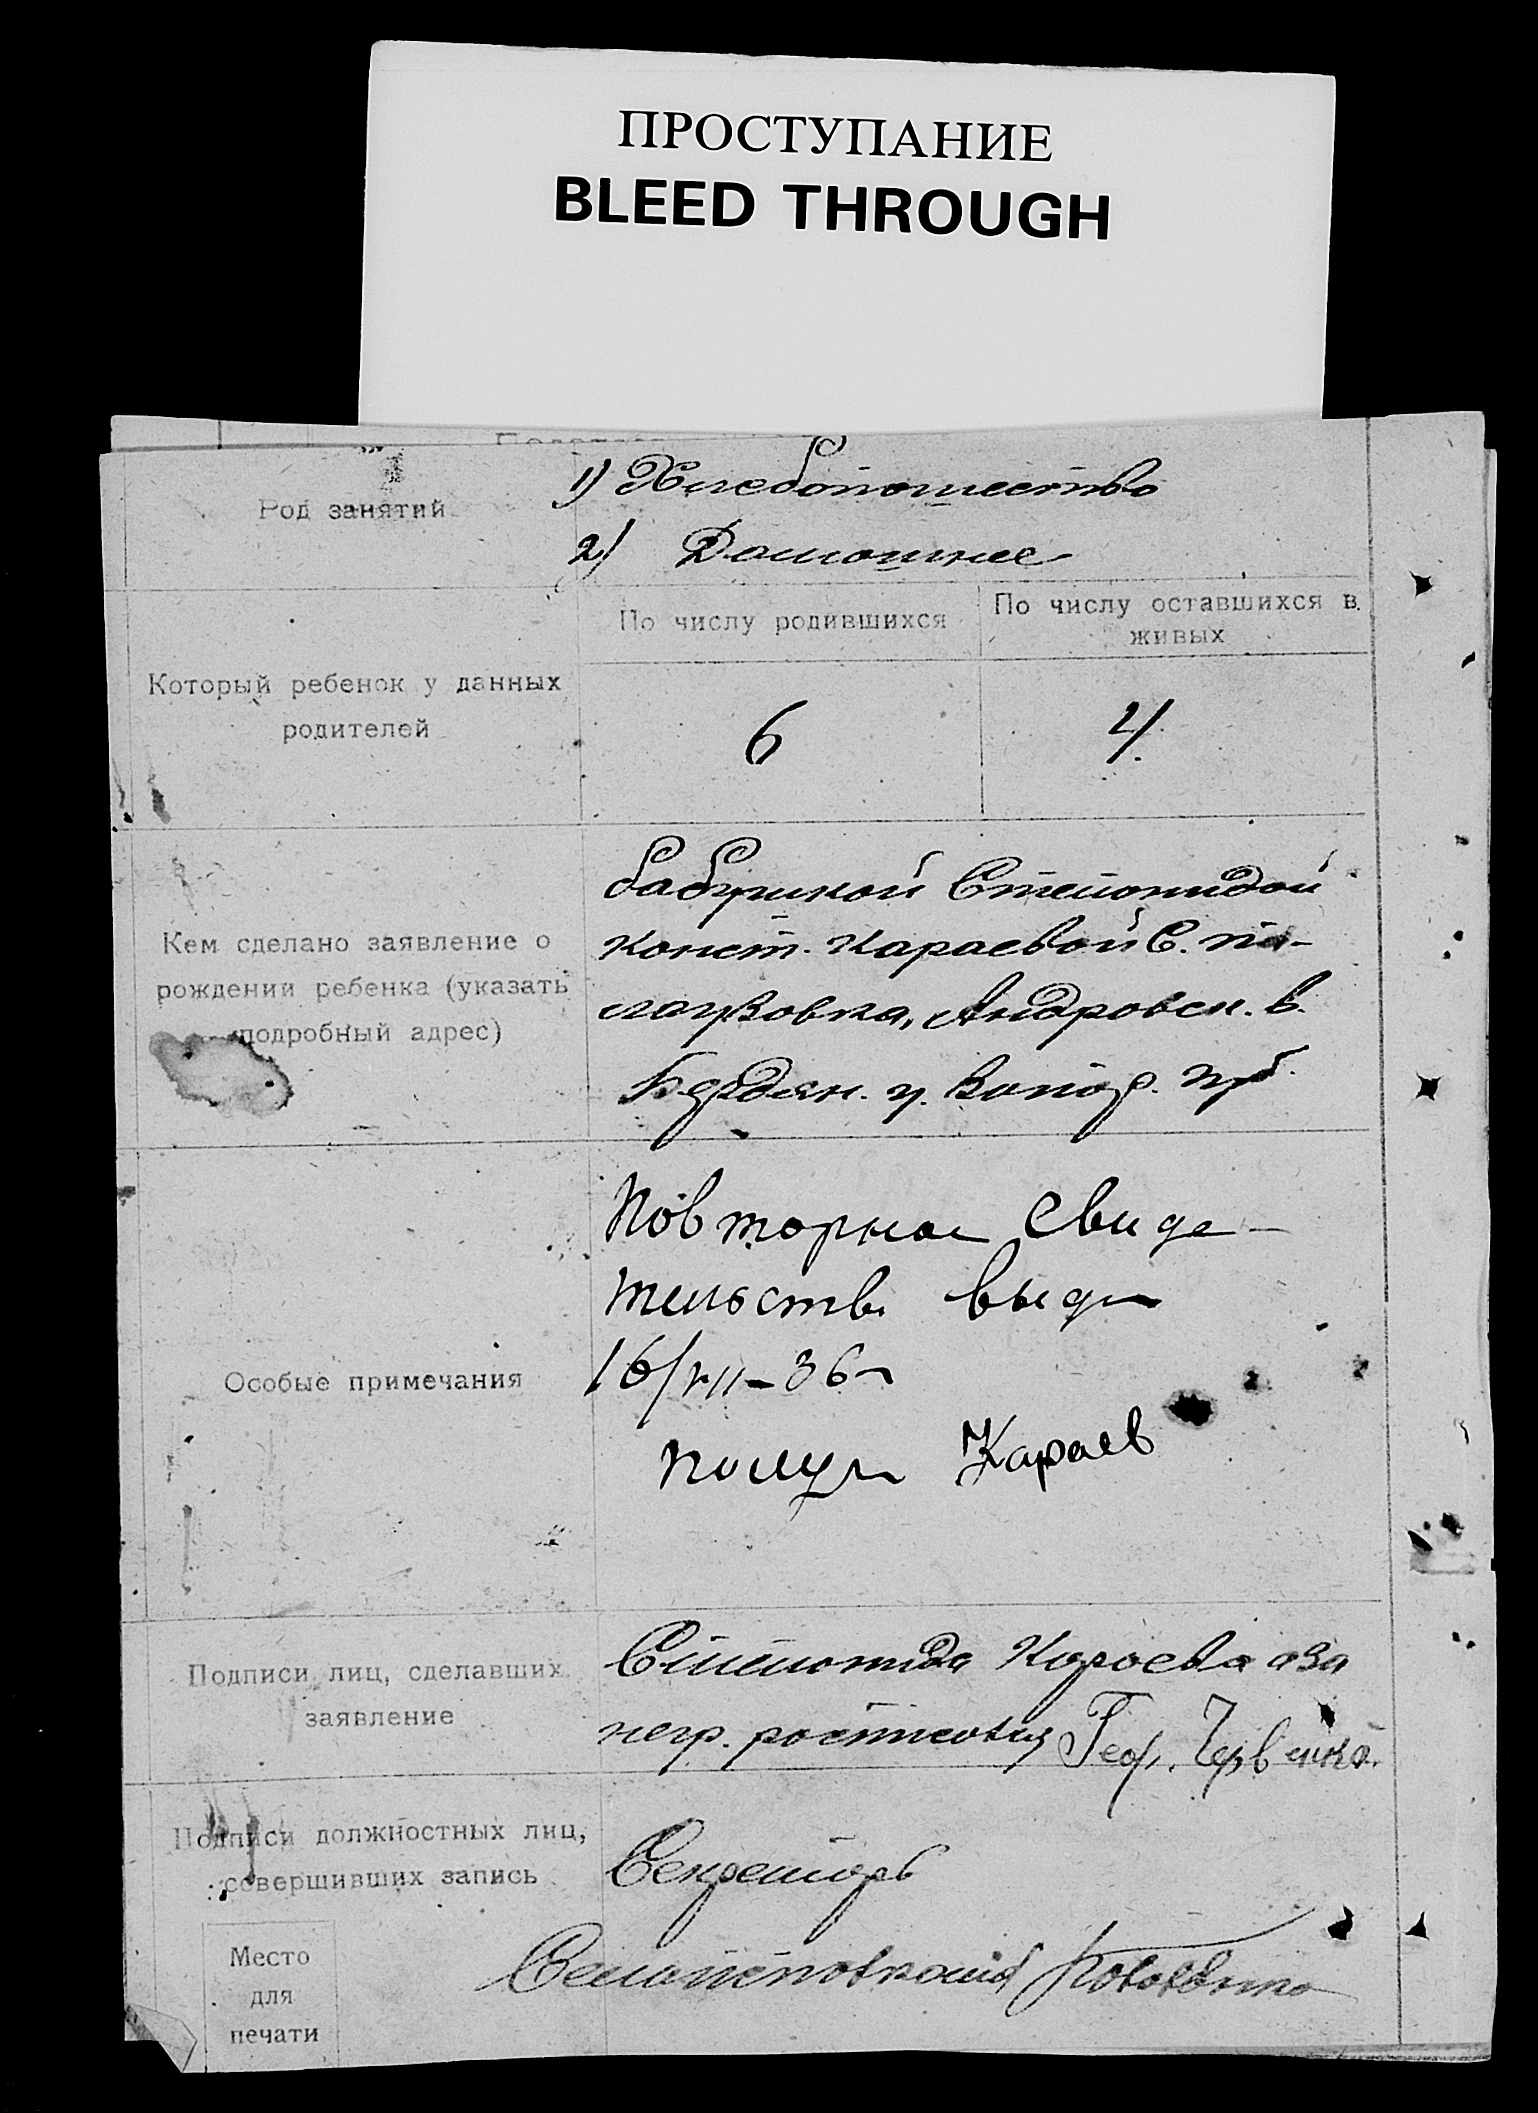 ПРОСТУПАНИЕ
BLEED THROUGH
Род занятий
1) Хлебопашество
2) Домашнее
По числу родившихся
По числу оставшихся в
живых
Который ребенок у данных
родителей
6
4
Кем сделано заявление о
рождении ребенка (указать
подробный адрес)
бабушкой Степанидой
Конст. Караевой С.
Андровск. в.
Бердян. у. Запор. губ.
Особые примечания
Повторное свиде-
тельство выдан
16/VII-36г
Получ Караев
Подписи лиц, сделавших
заявление
Степанида Караева а за
негр. росписовся
Подписи должностных лиц,
совершивших запись
Секретарь
Место
для
печати